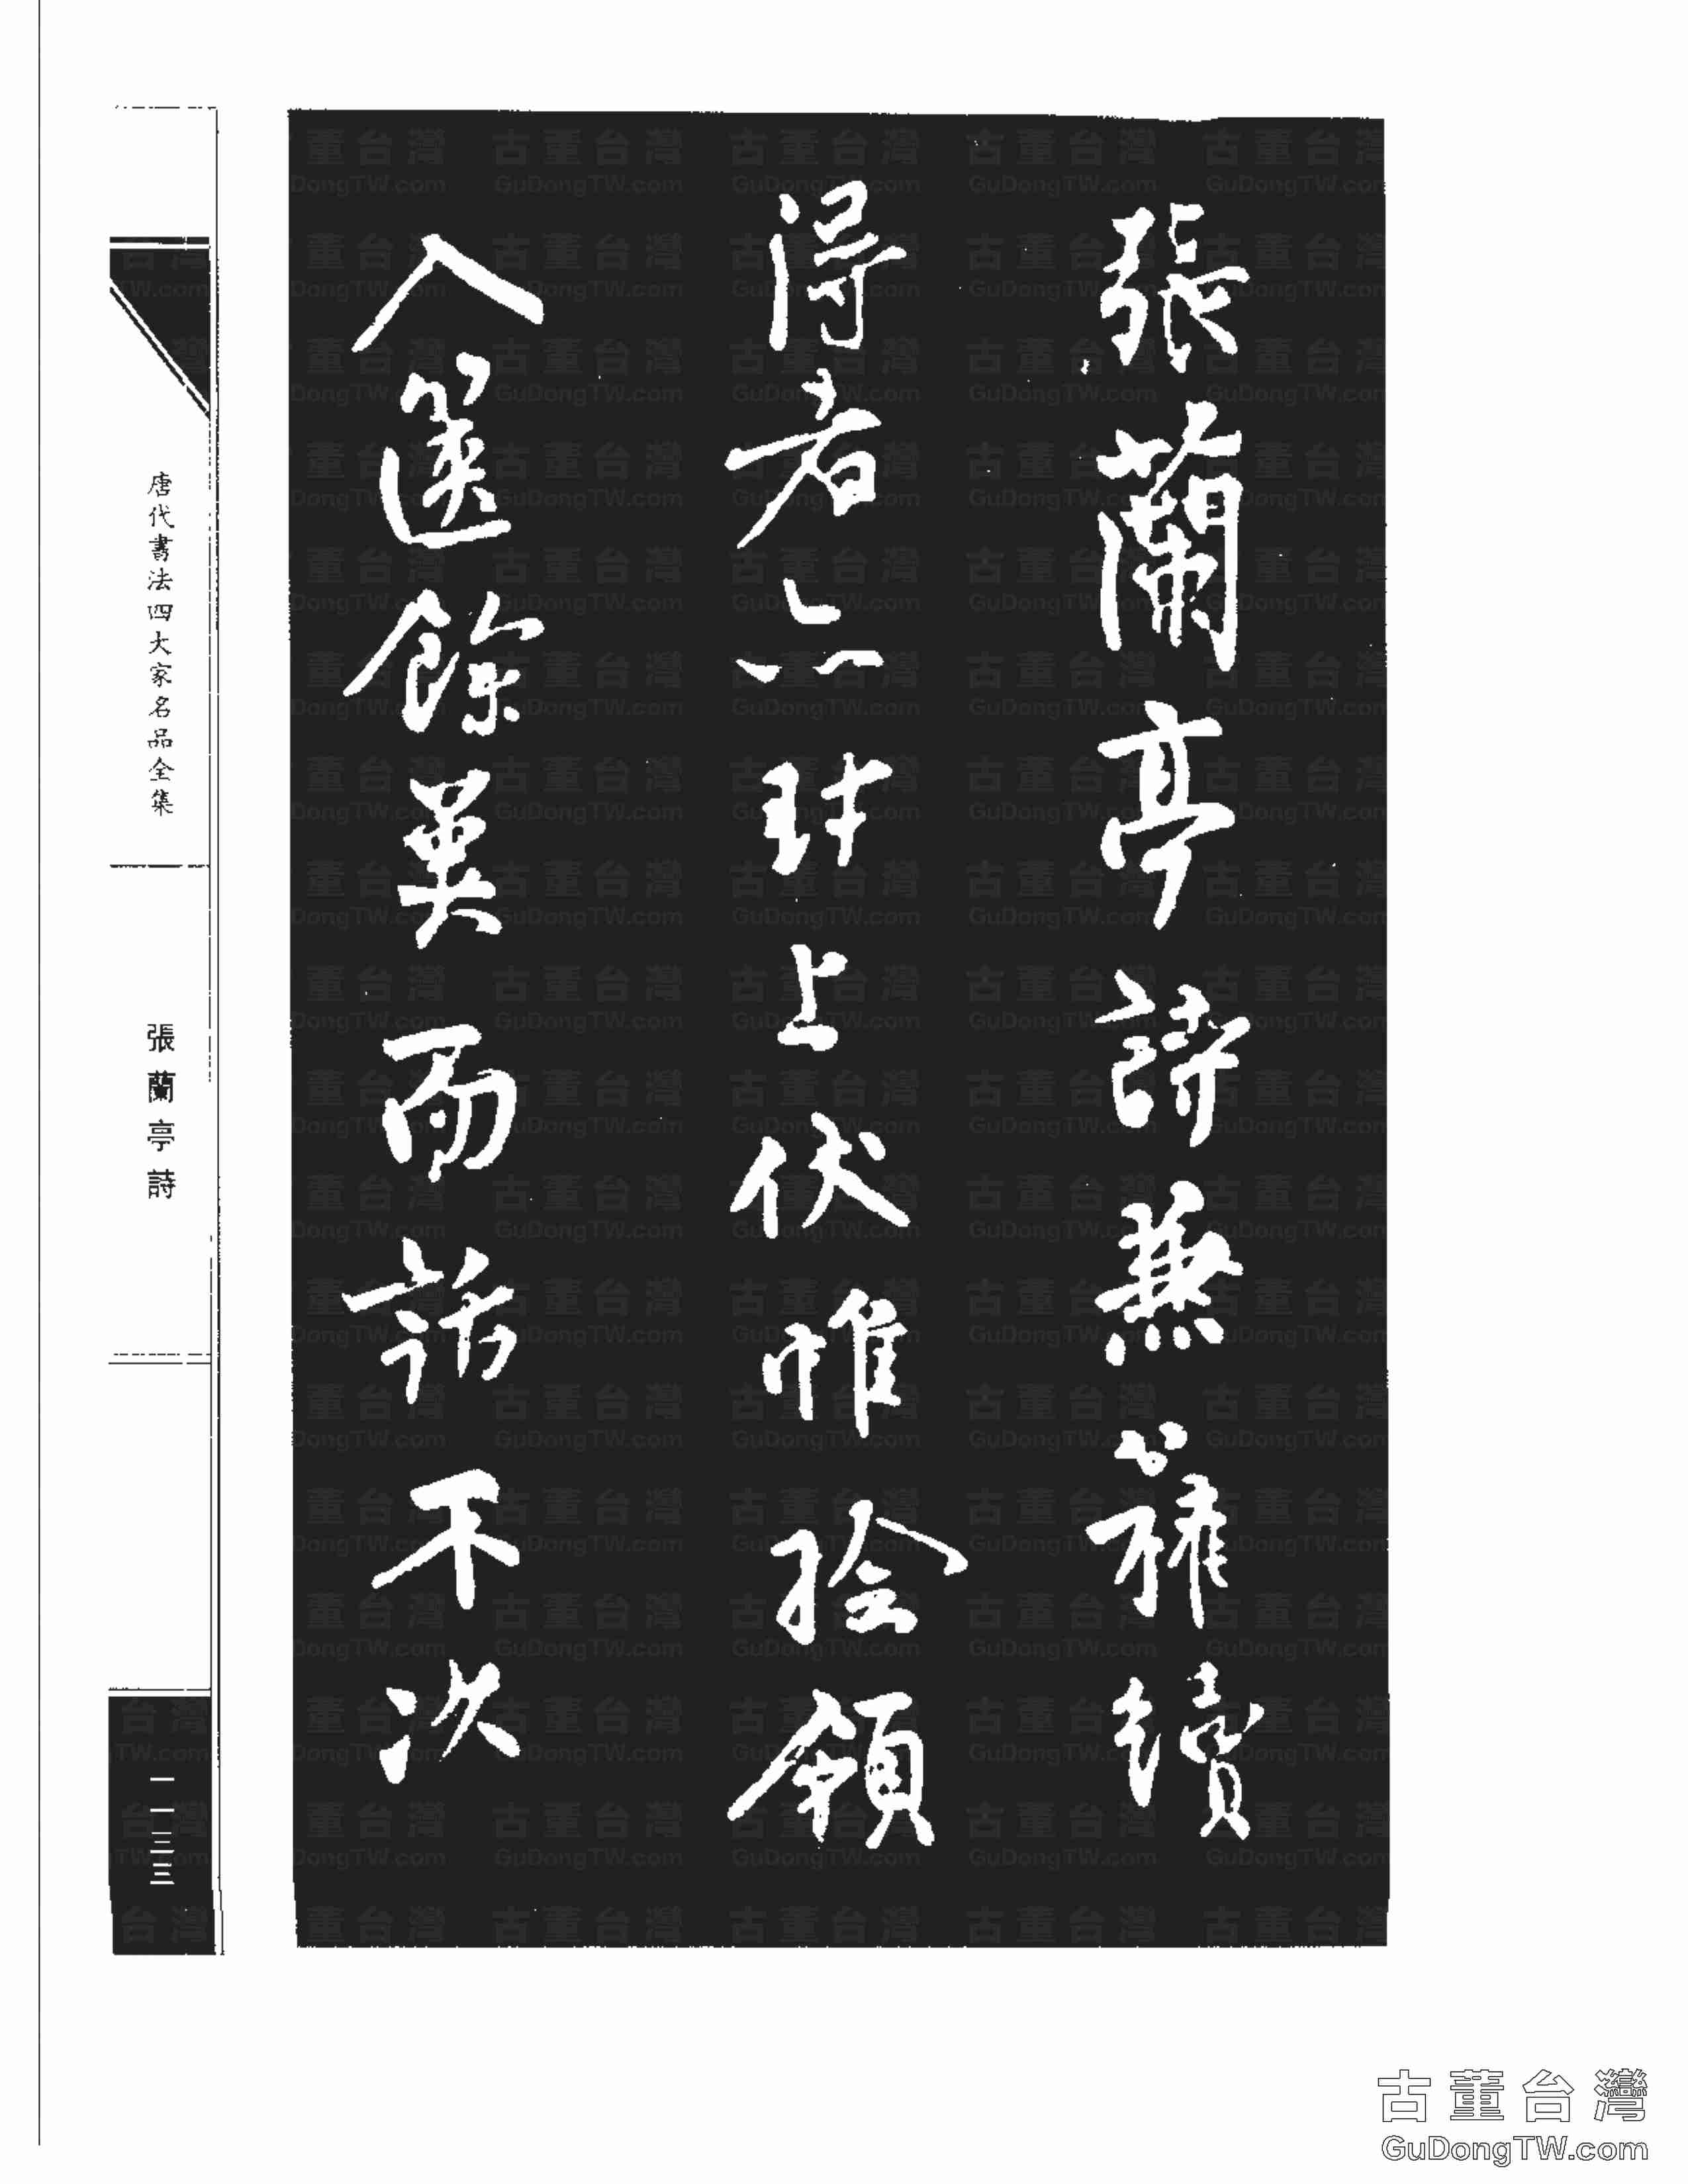 張蘭亭詩兼續
得者亦封上伏惟撿領
入篋餘冀面話不次
唐代書法四大家名品全集
張蘭亭詩
一一三三
古董台灣
GuDongTW.com